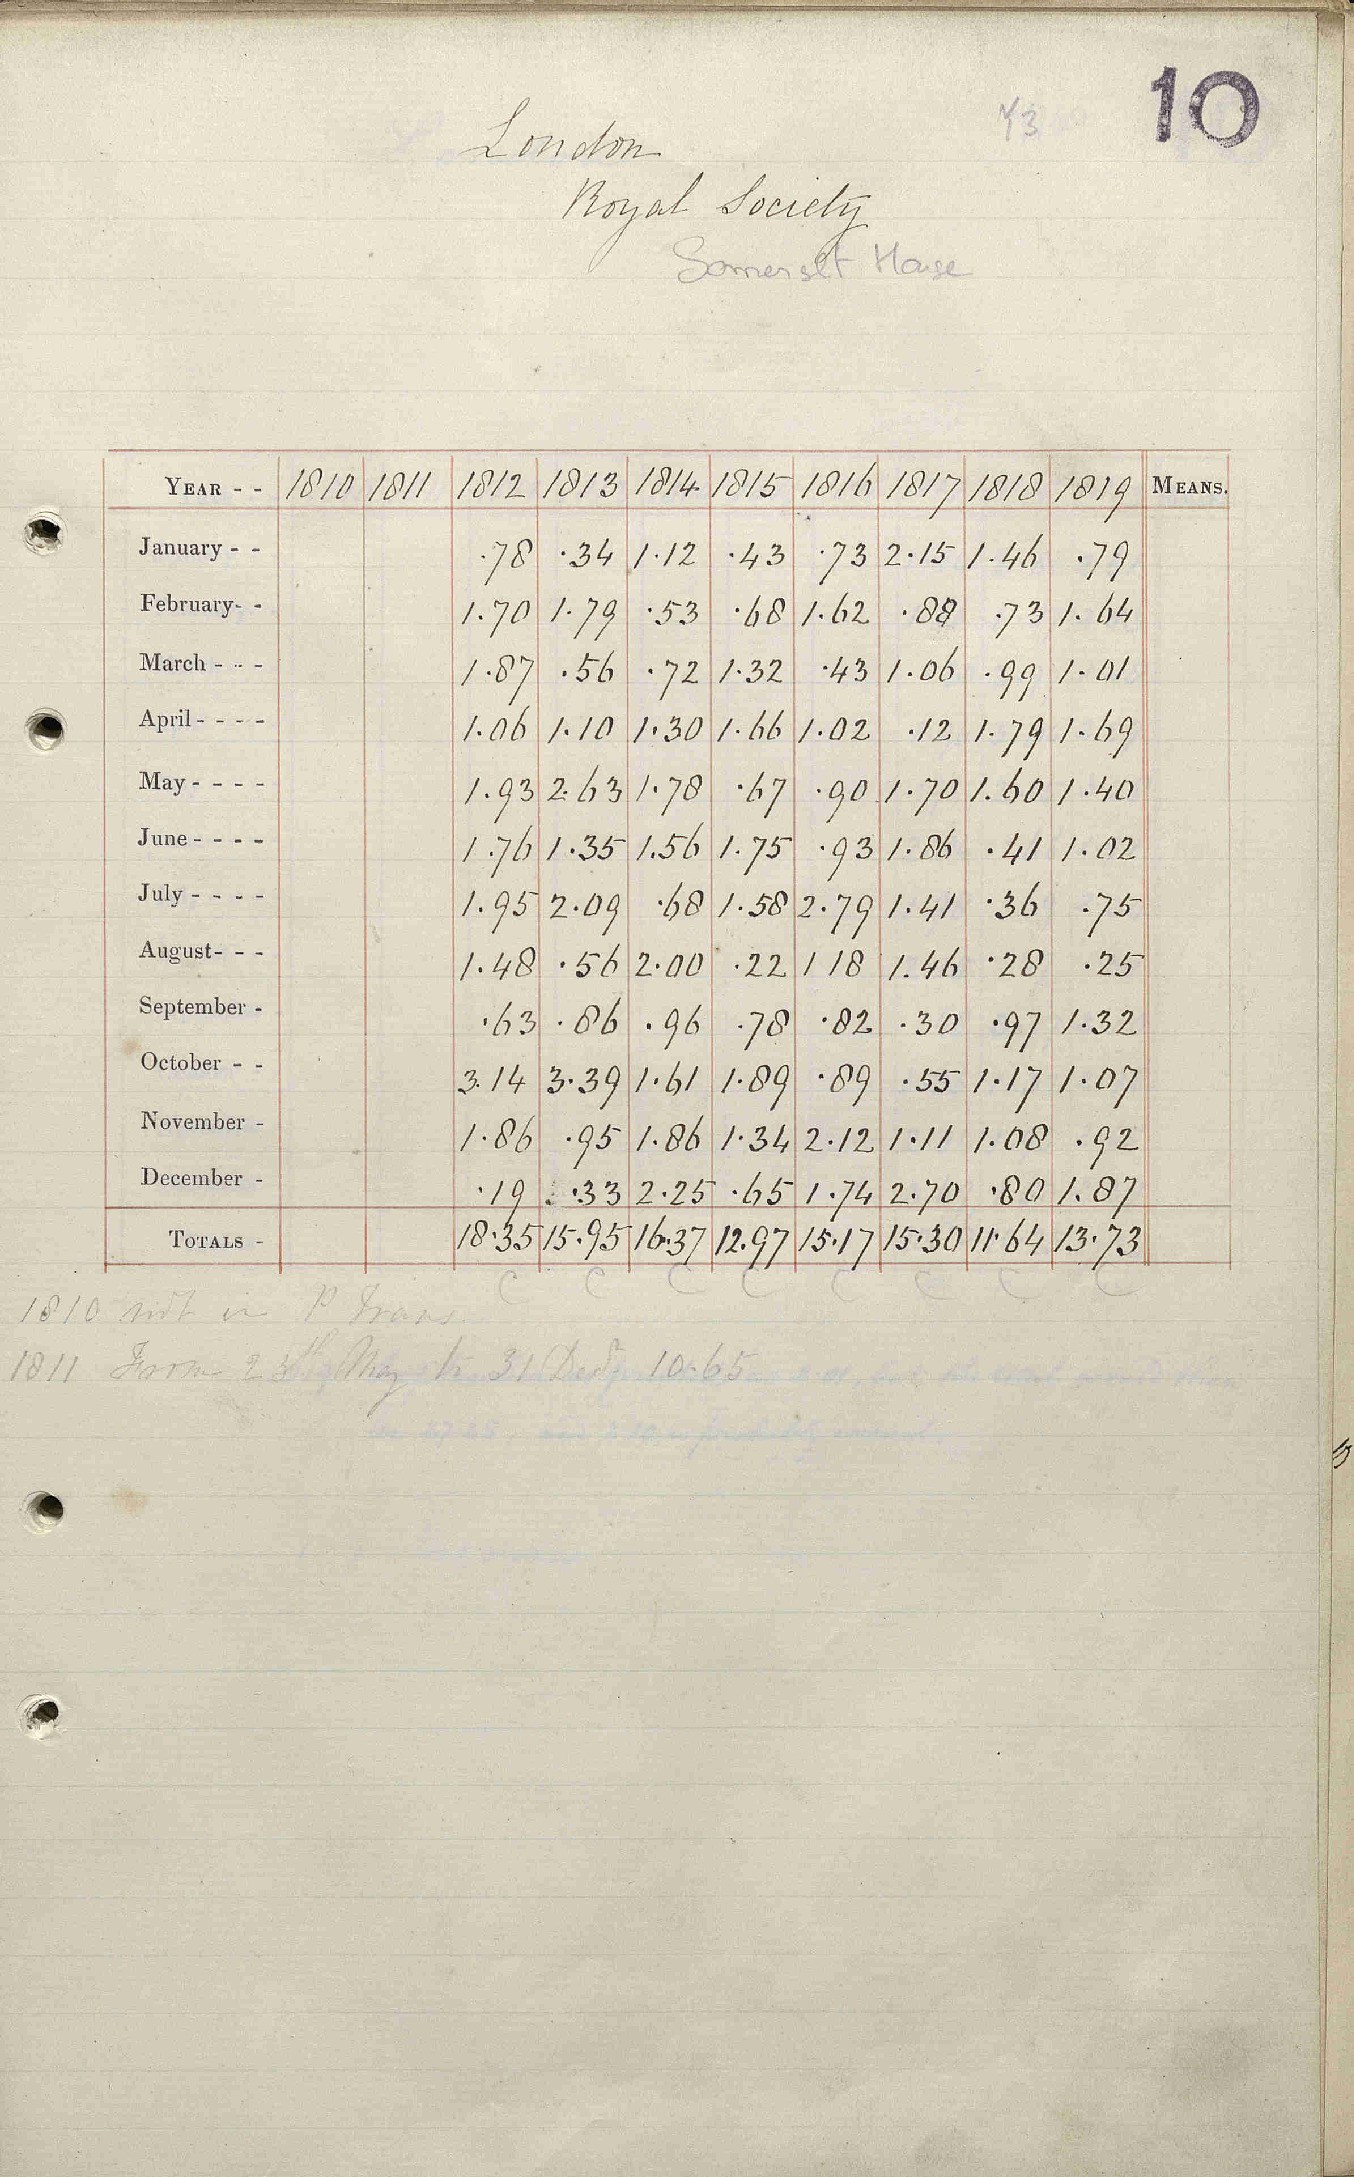 10
Y3
London
Royal Society
Somerset House
YEAR - - 1810 1811 1812 1813 1814 1815 1816 1817 1818 1819 MEANS.
January - - .78 .34 1.12 .43 .73 2.15 1.46 .79
February- - 1.70 1.79 .53 .68 1.62 .88 .73 1.64
March - - - 1.87 .56 .72 1.32 .43 1.06 .99 1.01
April - - - - 1.06 1.10 1.30 1.66 1.02 .12 1.79 1.69
May - - - - 1.93 2.63 1.78 .67 .90 1.70 1.60 1.40
June - - - - 1.76 1.35 1.56 1.75 .93 1.86 .41 1.02
July - - - - 1.95 2.09 .68 1.58 2.79 1.41 .36 .75
August- - - 1.48 .56 2.00 .22 1 18 1.46 .28 .25
September - .63 .86 .96 .78 .82 .30 .97 1.32
October - - 3.14 3.39 1.61 1.89 .89 .55 1.17 1.07
November - 1.86 .95 1.86 1.34 2.12 1.11 1.08 .92
December - .19 .33 2.25 .65 1.74 2.70 .80 1.87
TOTALS - 18.35 15.95 16.37 12.97 15.17 15.30 11.64 13.73
C C C C C C C C
1810 not in P Trans
1811 From 25th May to 31 Decr 10.65